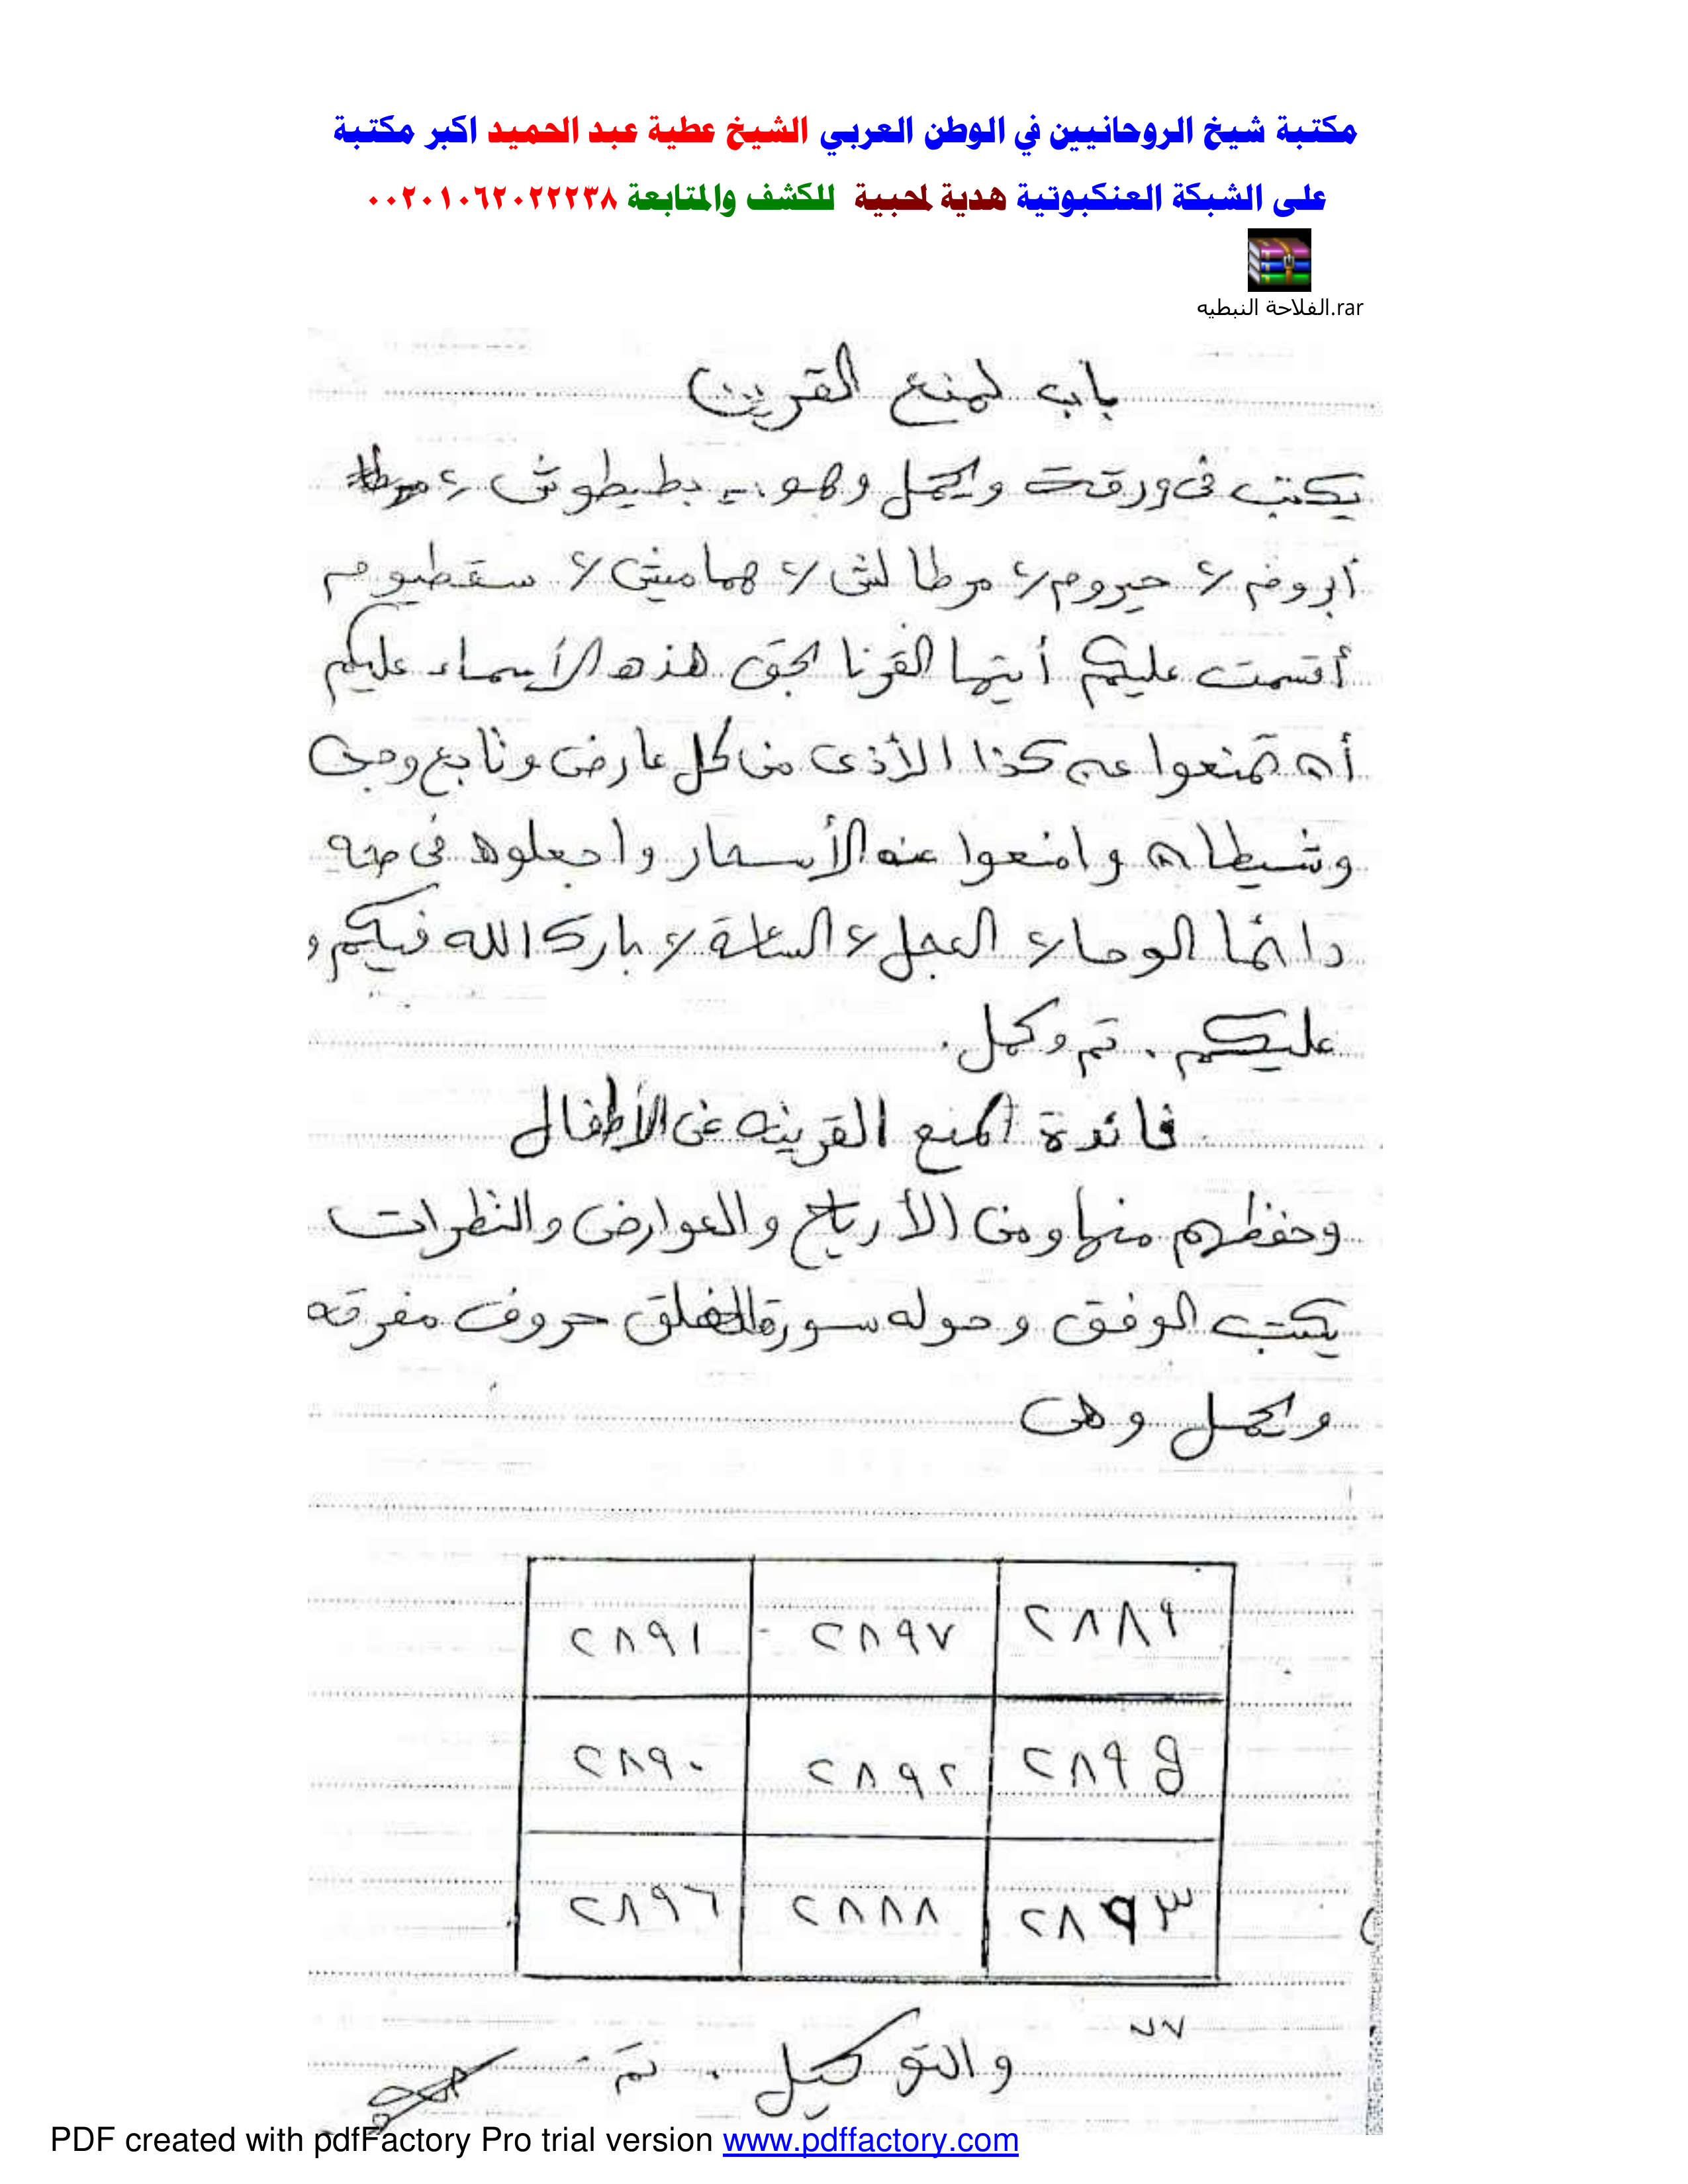 مكتبة شيخ الروحانيين في الوطن العربي الشيخ عطية عبد الحميد اكبر مكتبة
على الشبكة العنكبوتية هدية لمحبية للكشف والمتابعة ٠٠٢٠١٠٦٢٠٢٢٢٣٨
الفلاحة النبطيه.rar
باب لمنع القرين
يكتب فى ورقة ويحمل وهو :- بطيطوش ٢
أبروم ٢ حيروم ٢ مرطالش ٢ هماميش ٢ سقطيوم
أقسمت عليكم أيتها القرنا بحق هذه الأسماء عليكم
أن تمنعوا عن كذا الأذى من كل عارض وتابع وجن
وشيطان وامنعوا عنه الأسحار واجعلوه فى صحه
دائما الوحا ٢ العجل ٢ الساعة ٢ بارك الله فيكم و
عليكم . تم وكمل .
فائدة لمنع القرينه عن الأطفال
وحفظهم منها ومن الأرياح والعوارض والنظرات
يكتب الوفق وحوله سورة الفلق حروف مفرقه
ويحمل وهى
٢٨٨٩ ٢٨٩٧ ٢٨٩١
٢٨٩٥ ٢٨٩٢ ٢٨٩٠
٢٨٩٣ ٢٨٨٨ ٢٨٩٦
والتوكيل . تم
PDF created with pdfFactory Pro trial version www.pdffactory.com